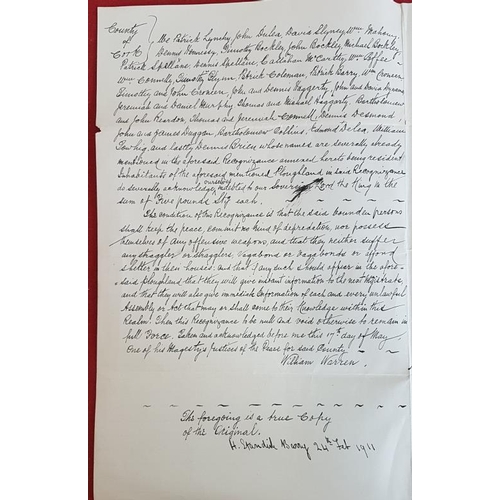 County
of
Cork
We Patrick Lynchy John Dulea David Slyney Wm Mahony
Dennis Hennessy, Timothy Bockley, John Bockley, Michael Bockley
Patrick Spillane, Dennis Spillane, Callahan McCarthy, Wm Coffee
Wm Connelly Timothy Flynn Patrick Coleman, Patrick Barry, Wm Cronin
Timothy and John Cronin John and Dennis Haggerty, John and Davis
Jeremiah and Daniel Murphy Thomas and Michael Haggerty, Bartholomew
and John Reardon, Thomas and Jeremiah Connell, Dennis Desmond,
John and James Duggan, Bartholomew Collins, Edmond Dulea, William
Twohig, and lastly Dennis Brien whose names are severally already
mentioned in the aforesaid Recognizance annexed hereto being resident
Inhabitants of the aforesaid mentioned Ploughland in said Recognizance
do severally acknowledge ourselves indebted to our Sovereign Lord the King in the
sum of Five pounds Stg each.
The condition of this Recognizance is that the said bounden persons
shall keep the peace, commit no kind of depredation, nor possess
themselves of any offensive weapons, and that they neither suffer
any straggler or stragglers, vagabond or vagabonds or afford
shelter in their houses, and that if any such should appear in the afore-
said ploughland that they will give instant information to the next Magistrate,
and that they will also give immediate Information of each and every unlawful
Assembly or Act that may or shall come to their Knowledge within this
Realm. Then this Recognizance to be null and void otherwise to remain in
full Force. Taken and acknowledged before me this 17th day of May
One of his Magesty's Justices of the Peace for said County.
William Warren.
The foregoing is a true Copy
of the Original.
H. Standish Barry 24th Feb 1911